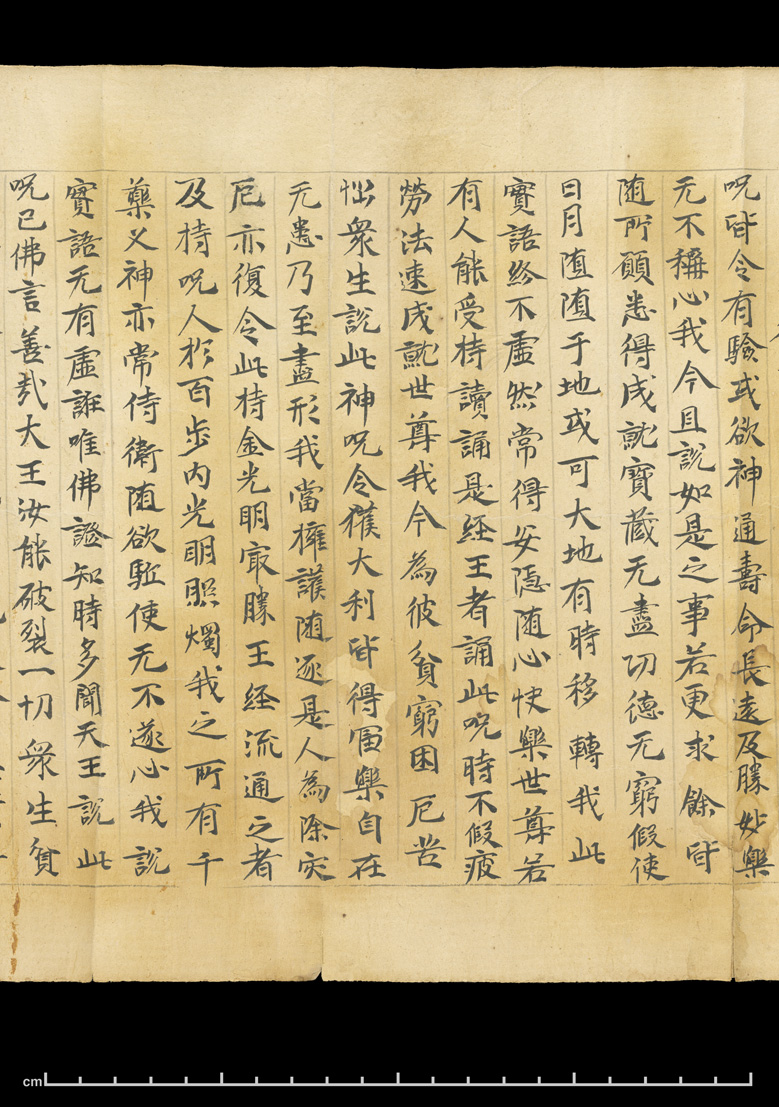 呪皆令有驗或欲神通壽命長遠及勝妙樂
无不稱心我今且說如是之事若更求餘皆
随所願悉得成就寶藏无盡功德无窮假使
日月堕堕于地或可大地有時移轉我此
實語終不虛然常得安隱随心快樂世尊若
有人能受持讀誦是経王者誦此呪時不假疲
勞法速成就世尊我今為彼貧窮困厄苦
惱衆生說此神呪令獲大利皆得冨樂自在
无患乃至盡形我當擁護随逐是人為除灾
厄亦復令此持金光明最勝王経流通之者
及持呪人扵百步內光明照燭我之所有千
藥叉神亦常侍衛随欲駈使无不遂心我說
實語无有虛誑唯佛證知時多聞天王說此
呪已佛言善哉大王汝能破裂一切衆生貧